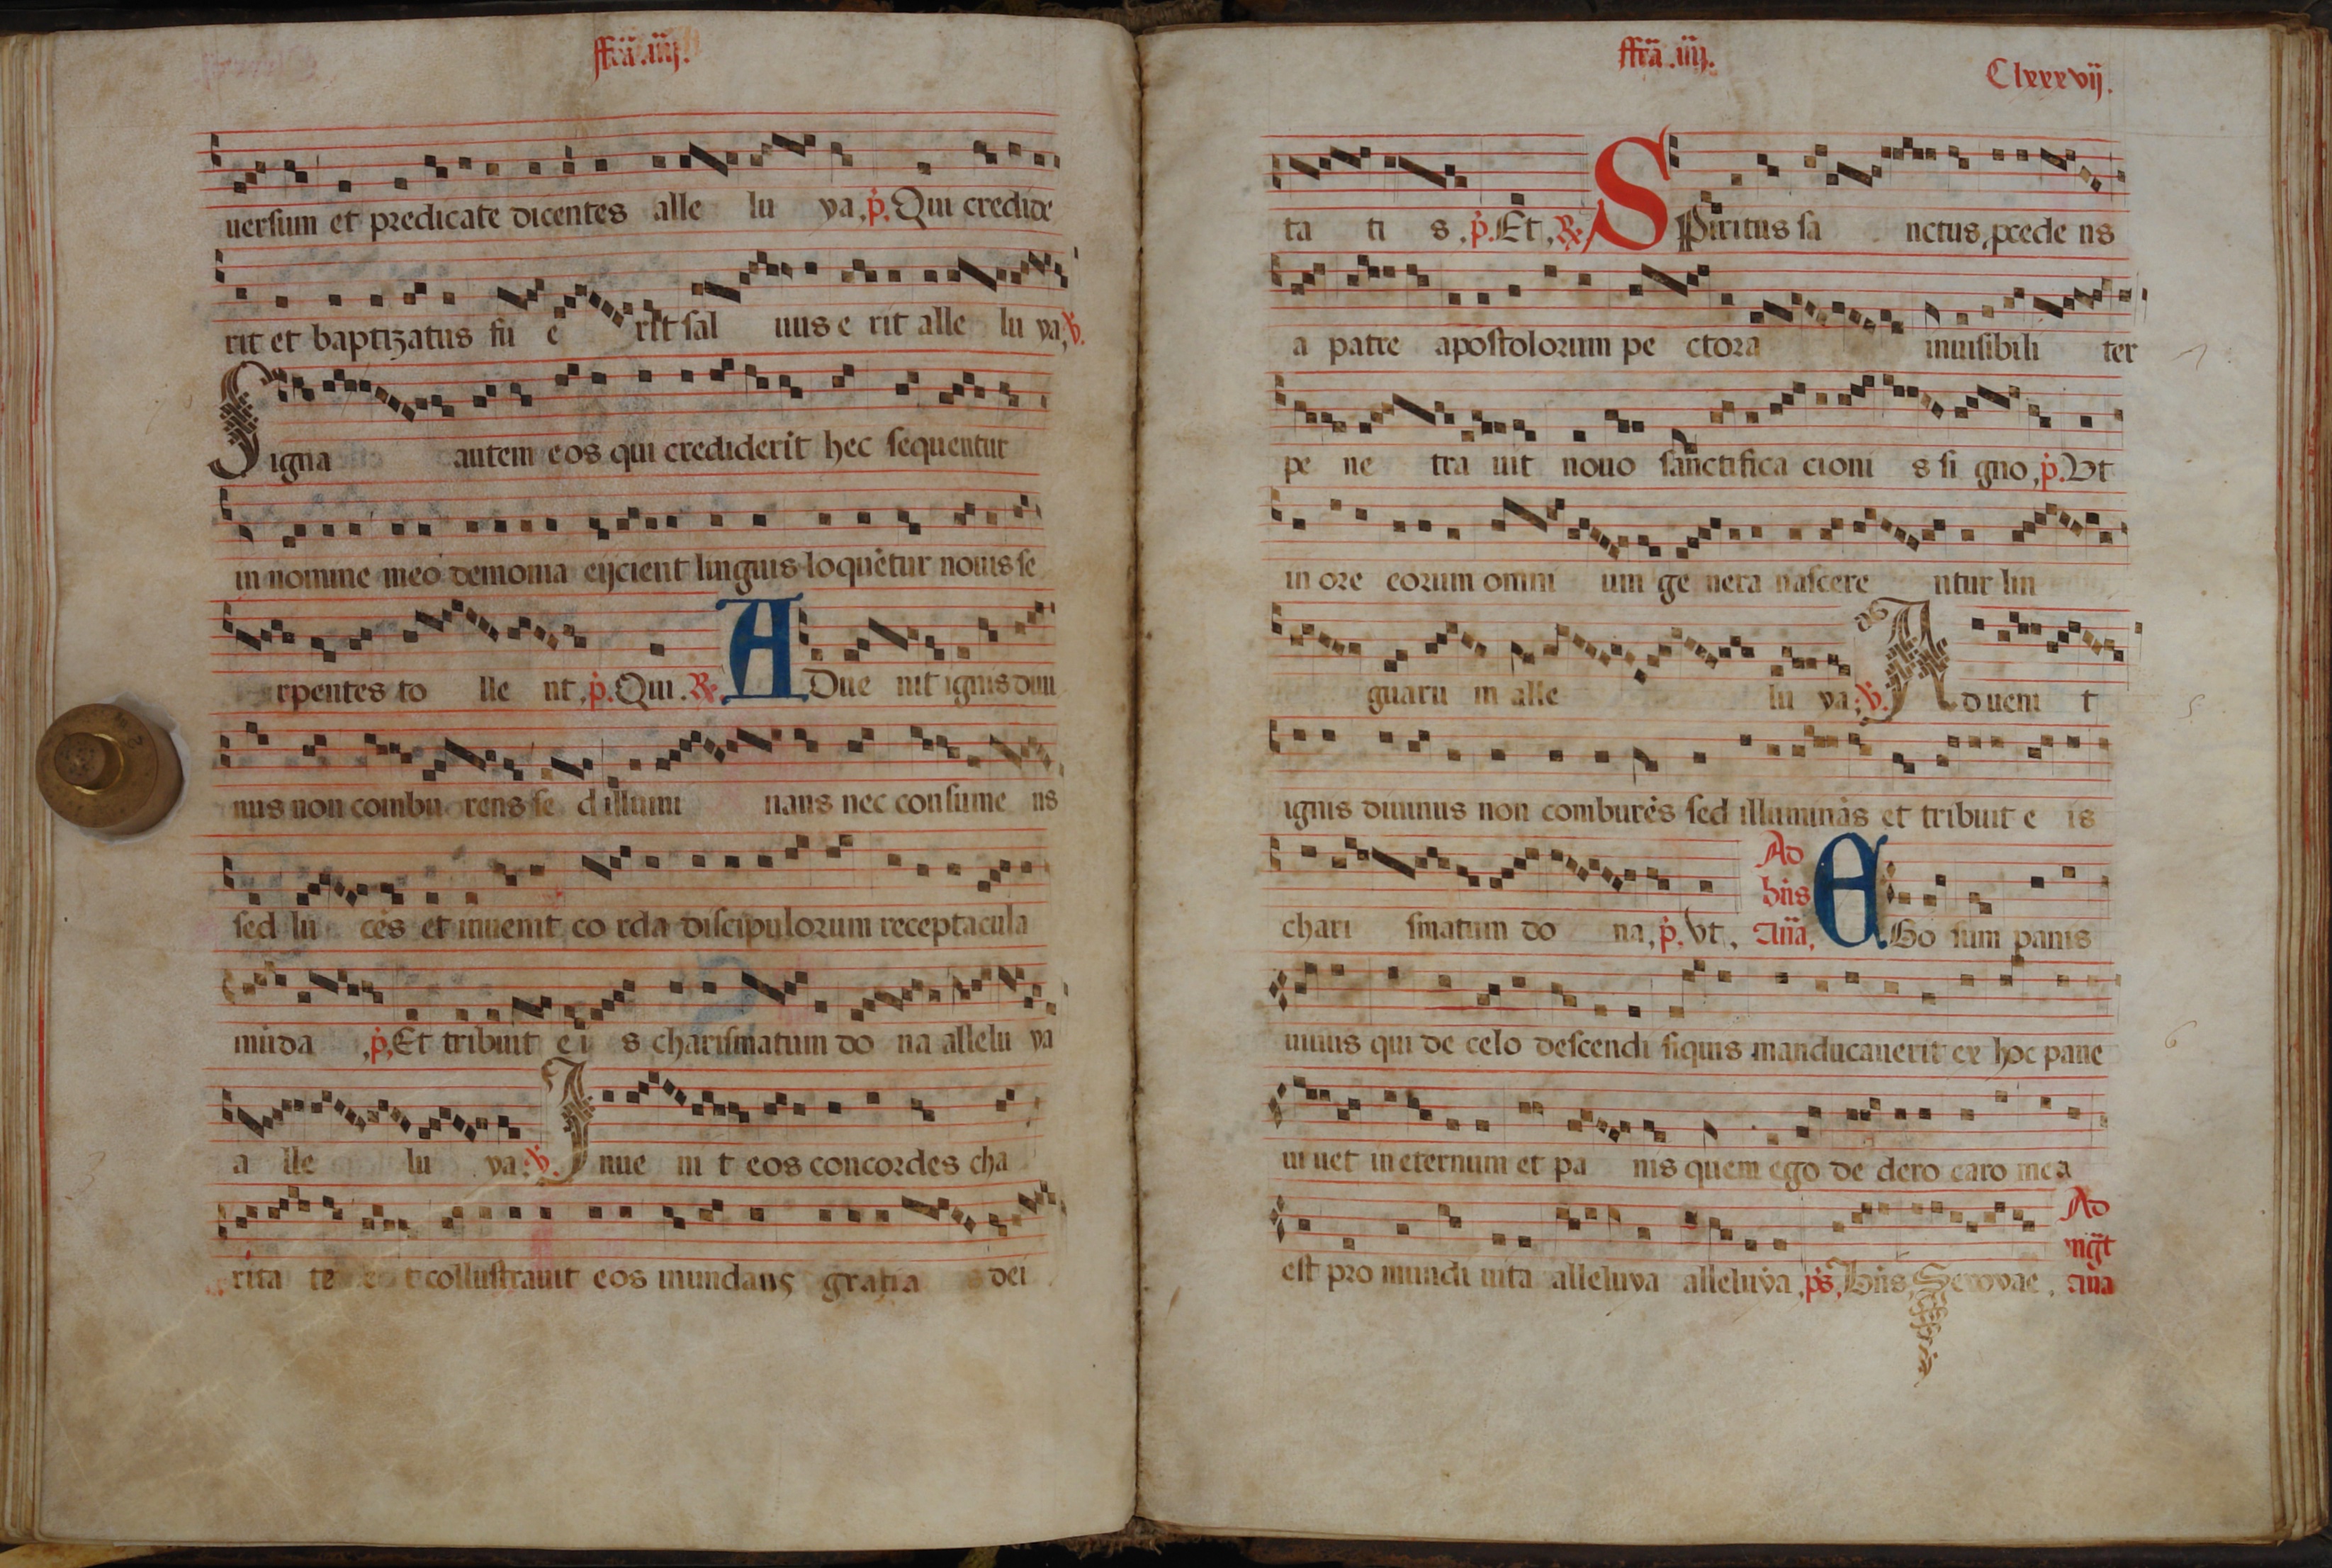 ffrã .iiij.
uersum et predicate dicentes alle lu ya, p̃. Qui credide
rit et baptizatus fu e rit sal uus e rit alle lu ya, v̈.
Signa autem eos qui crediderit hec sequentur
in nomine meo demonia eijcient linguis loquẽtur nouis se
rpentes to lle nt, p̃. Qui. R̃. ADue nit ignis diui
nus non combu rens se d illumi nans nec consume ns
sed lu cẽs et inuenit co rda discipulorum receptacula
mũda , p̃, Et tribuit e i s charismatum do na allelu ya
a lle lu ya: v̈. Inue ni t eos concordes cha
rita te e t collustrauit eos inundans gratia dei
ffrã .iiij.
Clxxxvij.
ta ti s, p̃. Et, R̃ SPiritus sa nctus, pcede ns
a patre apostolorum pe ctora inuisibili ter
pe ne tra uit nouo sanctifica cioni s si gno, p̃. Vt
in ore eorum omni um ge nera nascere ntur lin
guaru m alle lu ya: v̈. Adueni t
ignis diuinus non comburẽs sed illuminãs et tribuit e is
chari smatum do na, p̃. vt, Ad bñs añã, EGo sum panis
uiuus qui de celo descendi siquis manducauerit ex hoc pane
ui uet in eternum et pa nis quem ego de dero caro mea
est pro mundi uita alleluya alleluya, p̃s, Bñs, Seuouae, Ad mg̃t aña